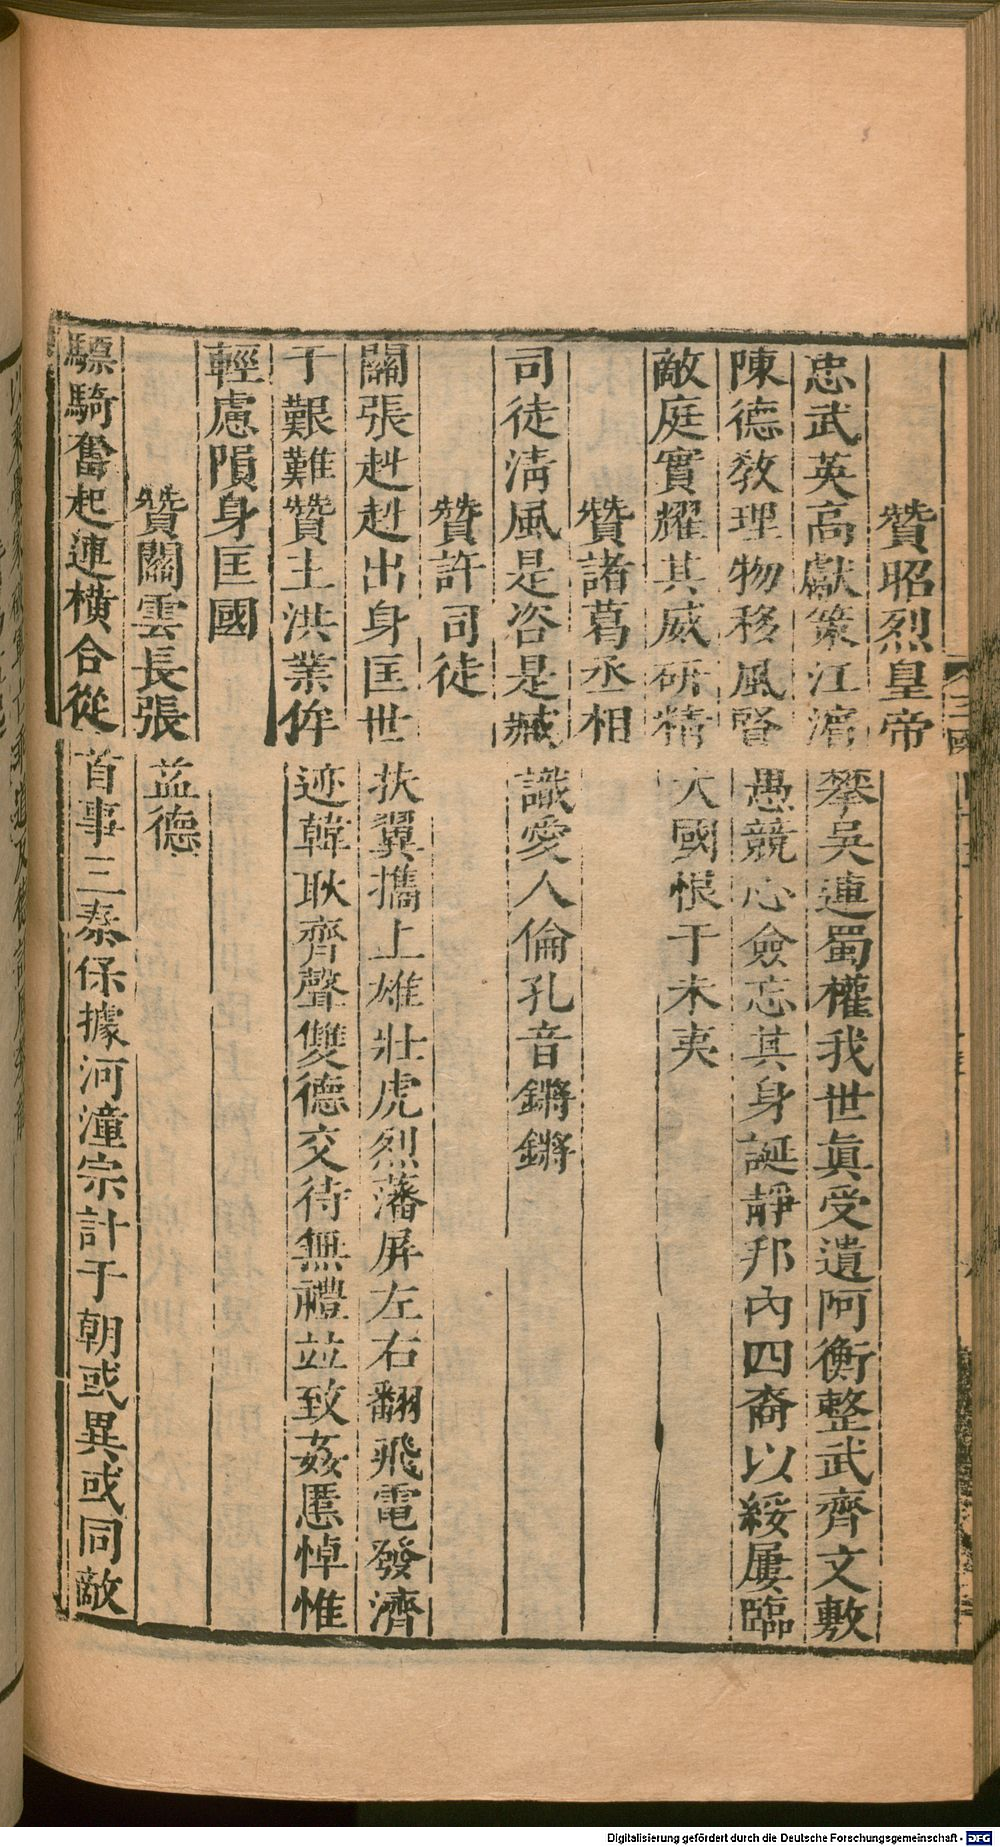 贊昭烈皇帝
忠武英高獻策江濱攀吳連蜀權我世眞受遺阿衡整武齊文敷
陳德敎理物移風賢愚競心僉忘其身誕靜邦內四裔以綏屢臨
敵庭實耀其威研精大國恨于未夷
贊諸葛丞相
司徒淸風是咨是臧識愛人倫孔音鏘鏘
贊許司徒
關張赳赳出身匡世扶翼攜上雄壯虎烈藩屏左右翻飛電發濟
于艱難贊主洪業侔迹韓耿齊聲雙德交待無禮並致姦慝悼惟
輕慮隕身匡國
贊關雲長張益德
驃騎奮起連橫合從首事三秦保據河潼宗計于朝或異或同敵
三國
Digitalisierung gefördert durch die Deutsche Forschungsgemeinschaft - DFG